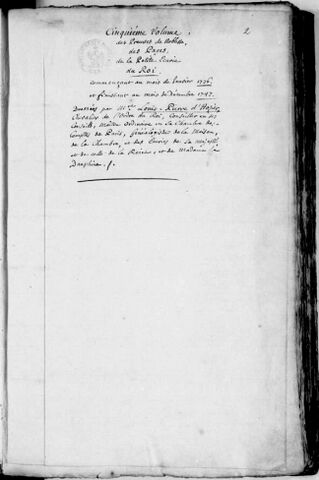 2
Cinquième Volume,
des Preuves de Noblesse,
des Pages,
de la Petite Ecurie
du Roi.
commençant au mois de Janvier 1736
et finissant au mois de Décembre
Dressées par M.re Louis-Pierre d'Hozier,
Chevalier de l'Ordre du Roi, Conseiller en ses
Conseils, Maître Ordinaire en sa Chambre des
Comptes de Paris, Généalogiste de la Maison,
de la Chambre, et des Ecuries de Sa Majesté,
et de celle de la Reine, et de Madame la
Dauphine./.